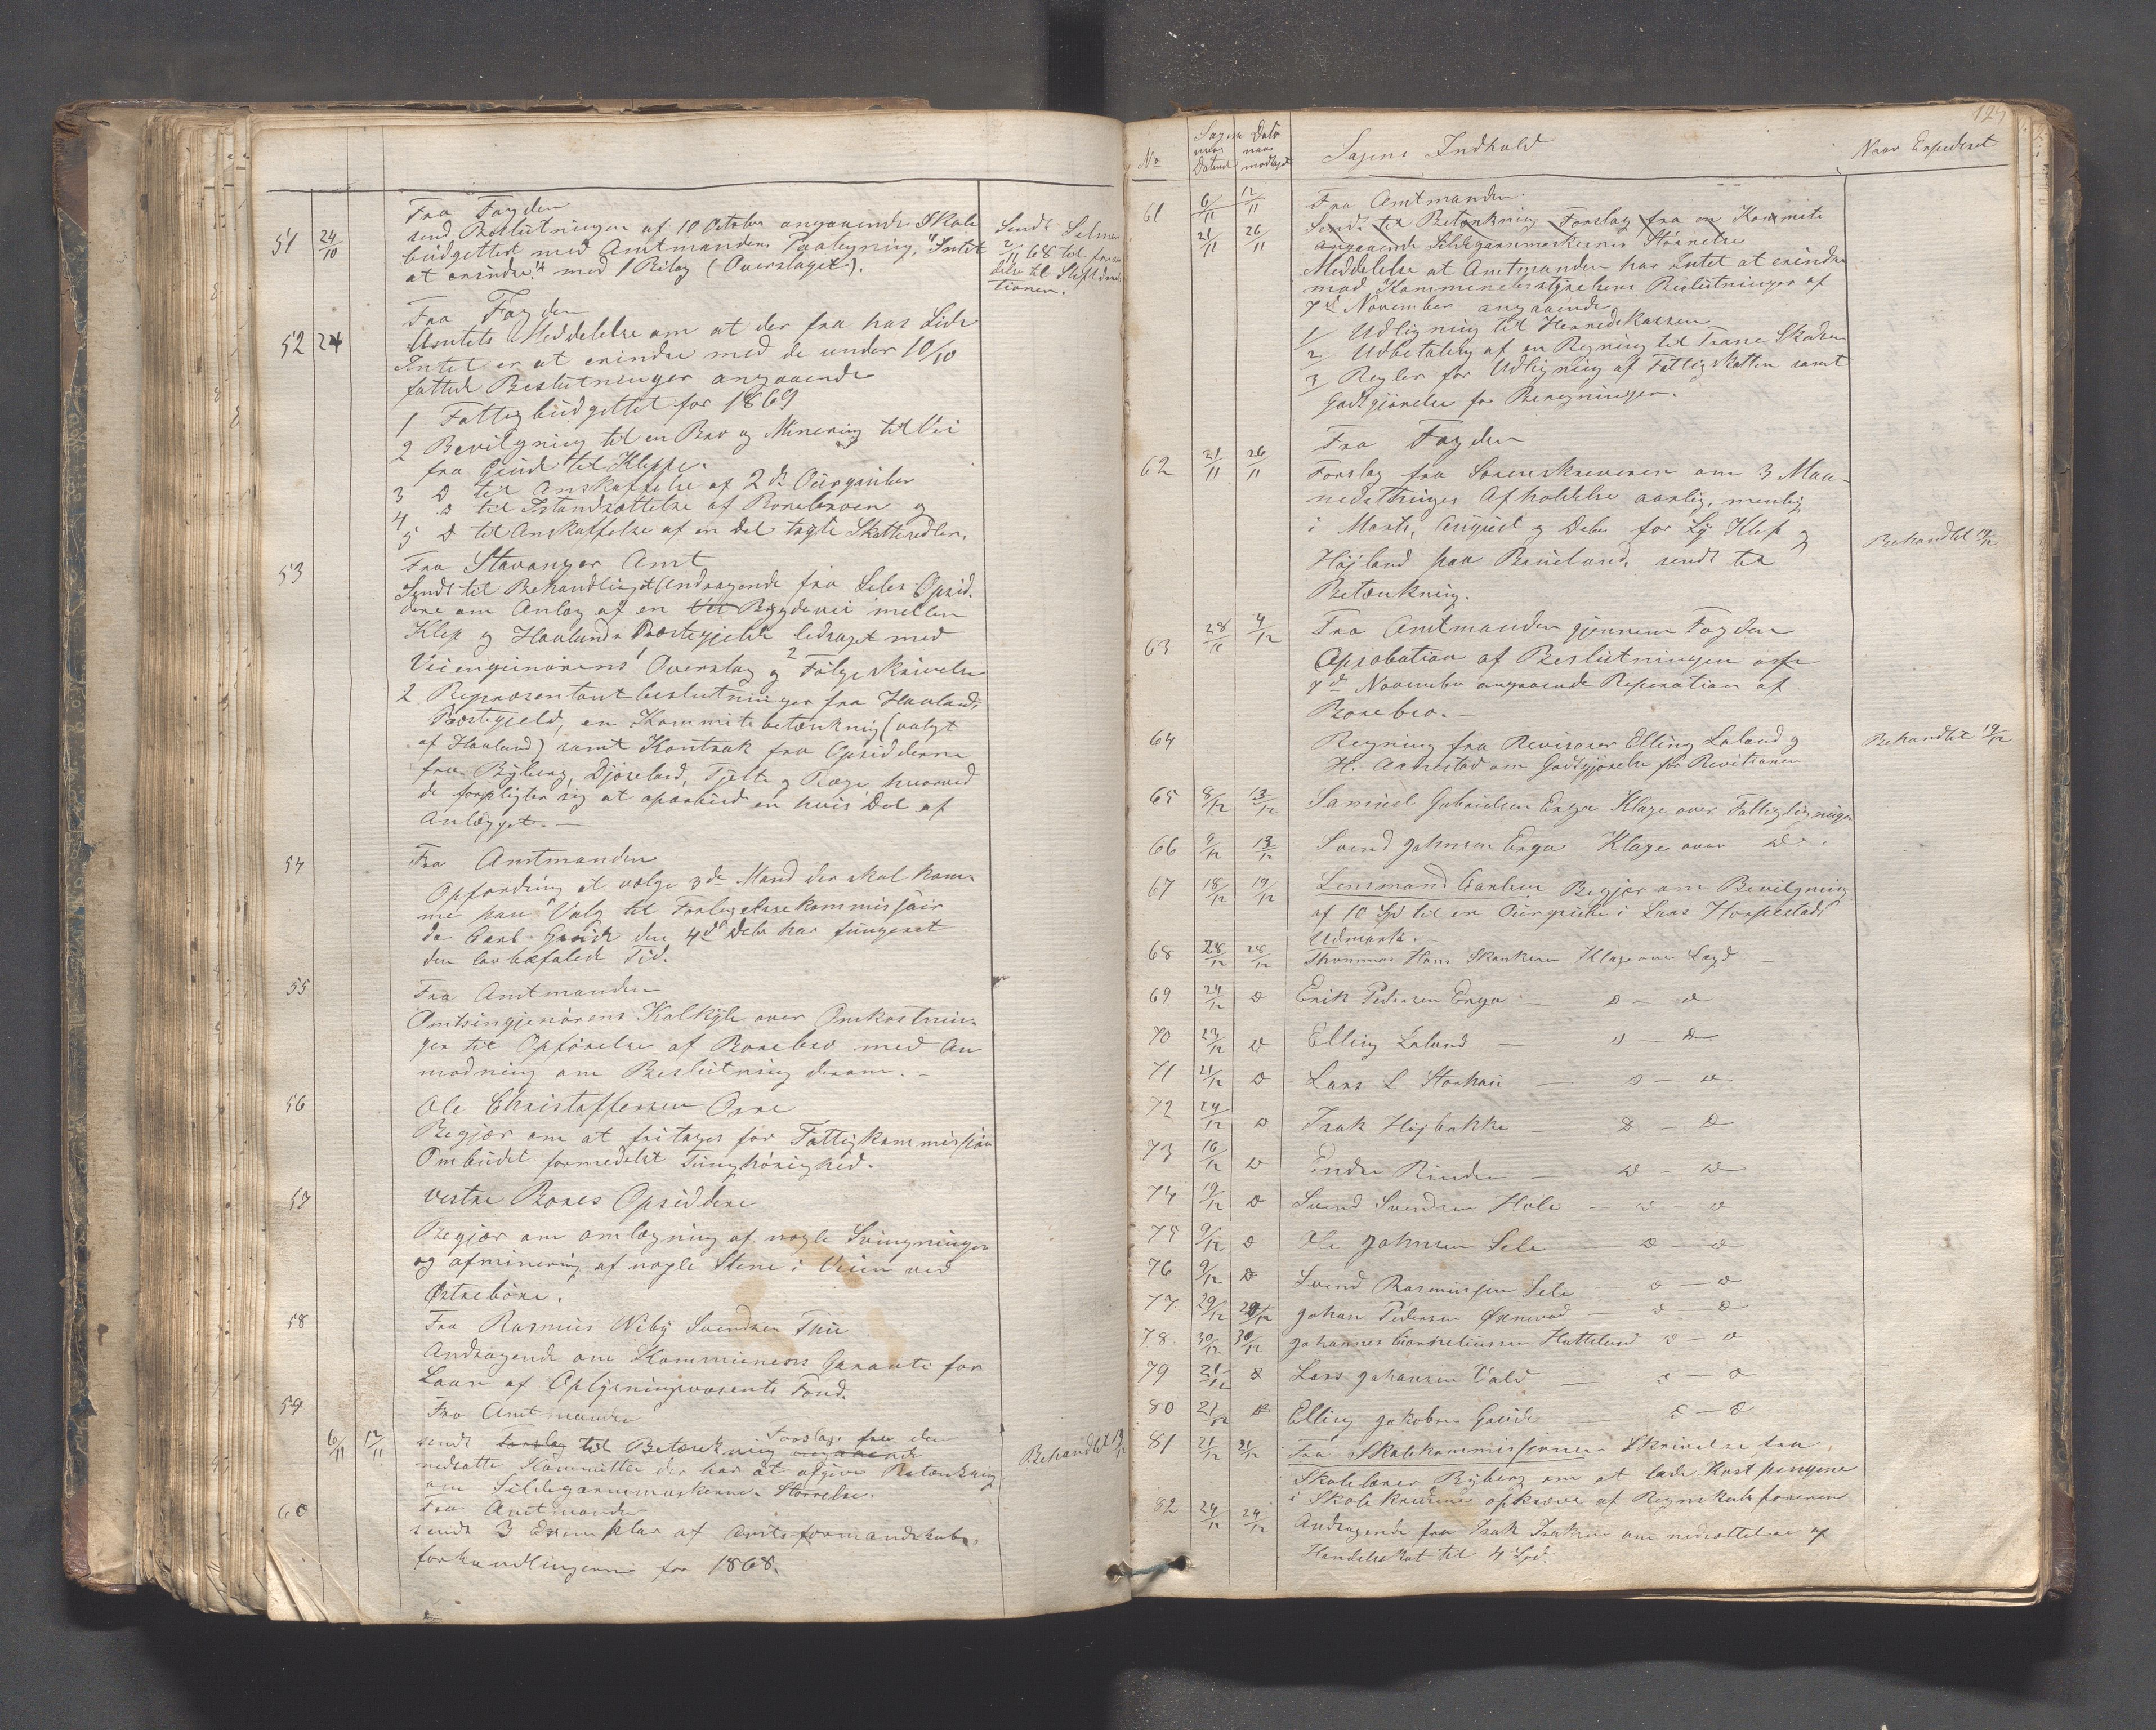 51 24/10 Fra Fogden
send Beslutningen af 10 October angaaende Skole
budgettet med Amtmandens Paategning, "Intet
at erindre" med 1 Bilag (Overslaget).
Sendt
2/11 68 til
til Stiftsdirek
tionen.
52 24 Fra Fogden
Amtets Meddelelse om at der fra hans Side
Intet er at erindre med de under 10/10
fattede Beslutninger angaaende
1 Fattigbudgettet for 1869
2 Bevilgning til en Bro og Minering til Vei
fra Grude til Kleppe.
3 D til Anskaffelse af 2de
4 D til Istandsættelse af Borebroen og
5 D til Anskaffelse af en Del trygte Skattesedler.
53 Fra Stavanger Amt
Sendt til Behandling Andragende fra Seles Opsid.
dere om Anlæg af en Bygdevei mellem
Klep og Haalands Præstegjelde ledsaget med
Veiengeniørens Overslag og 2 Følgeskrivelse
2 Repræsentantbeslutninger fra Haalands
Præstegjeld, en Kommitebetænkning (valgt
af Haaland) samt Kontrak fra Opsidderne
fra Ryberg, Tjelte og Ræge hvorved
de forpligter sig at oparbeide en hvis Del af
Anlægget. —
54 Fra Amtmanden
Opfordring at vælge 3de Mand der skal kom-
me paa Valg til Forligelseskommissair
da Carl Grude den 4de Debr har fungeret
den lovbefalede Tid.
55 Fra Amtmanden
Amtsingeniørens Kalkyle over Omkostnin-
gen til Opførelse af Borebro med An
modning om Beslutning derom. —
56 Ole Christoffersen Orre
Begjær om at fritages for Fattigkommission
Ombudet formedelst Tunghørighed.
57 Vestre Bores Opsiddere
Begjær om omlægning af nogle Svingninger
og afminering af nogle Stene i Veien ved
Østrebore.
58 Fra Rasmus Wiby Svendsen Thu
Andragende om Kommunens Garanti for
Laan af Oplysningsvæsenets Fond.
59 Fra Amtmanden
6/11 12/11 sendt Forslag til Betænkning angaaende Forslag fra den
nedsatte Kommitte der har at afgive Betænkning
om Sildegarnsmaskerne Størrelse.
Behandlet 19/12
60 Fra Amtmanden
sendt 3 Exemplar af Amtsformandskabs-
forhandlingerne for 1868.
No Sagen naar Dateret Dato naar modtaget Sagens Indhold Naar Expederet
61 6/11 12/11 Fra Amtmanden.
21/11 26/11 Sendt til Betænkning Forslag fra en Kommite
angaaende Sildegarnmaskernes Størrelse
Meddelelse at Amtmanden har Intet at erindre
mod Kommunebestyrelsens Beslutninger af
7de November angaaende
1/ Udligning til Herredskassen
2/ Udbetaling af en Regning til Trane Skadsem
3/ Regler for Udligning af Fattigskatten samt
Godtgjørelse for Beregningen.
62 21/11 26/11 Fra Fogden
Forslag fra Sorenskriveren om 3 Maa-
nedsthinges Afholdelse aarlig, nemlig
i Marts, August og Debr for Ly Klep og
Højland paa Bruelund, sendt til
Betænkning.
Behandlet 19/12
63 28/11 4/12 Fra Amtmanden gjennem Fogden
Aprobation af Beslutningen af
7de November angaaende Reperation af
Borebro. —
64 Regning fra Revisorer Elling Laland og
H. Aarrestad om Godtgjørelse for Revitionen
Behandlet 19/12
65 8/12 13/12 Samuel Gabrielsen Erga Klage over Fattigligningen
66 9/12 13/12 Svend Johnsen Erga Klage over D.
67 18/12 19/12 Lensmand Carlsen Begjær om Bevilgning
af 10 Spd til en i Lars Horpestads
Udmark. —
68 28/12 28/12 Thommas Hans Skankesen Klage over Lagd —
69 24/12 D Erik Pedersen Erga — D — D
70 23/12 D Elling Laland — D — D
71 21/12 D Lars L Storhau — D — D
72 24/12 D Isak Højbakke D — D
73 16/12 D Endre Rinden — D — D
74 19/12 D Svend Svendsen Hole — D — D
75 9/12 D Ole Johnsen Sele D — D
76 9/12 D Svend Rasmussen Sele — D — D
77 29/12 29/12 Johan Pedersen — D — D
78 30/12 30/12 Johannes Corneliussen Hatteland D — D
79 21/12 D Lars Johansen Vold — D — D
80 21/12 D Elling Jakobsen Grude — D — D
81 21/12 21/12 Fra Skolekommissionen Skrivelse fra
Skolelærer Ryberg om at lade Kostpengene
i Skolekredsene opkræve af Regnskabsføreren
82 24/12 24/12 Andragende fra Isak om nedsættelse af
Handelsskat til 4 Spd.